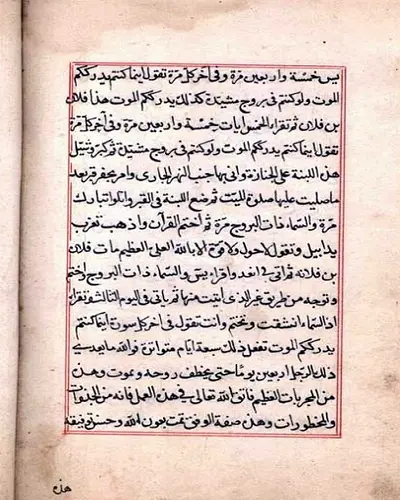 يس خمسة واربعين مرة وفي آخر كل مرة تقول اينما كنتم يدرككم
الموت ولو كنتم في بروج مشيدة كذلك يدرككم الموت هذا فلان
بن فلان ثم تقراء الخمس ايات خمسة واربعين مرة وفي آخر كل مرة
تقول اينما كنتم يدرككم الموت ولو كنتم في بروج مشيدة ثم كبر وشيل
هذه اللبنة على الجنازة واتي بها جنب النهر الجاري وامر بحفر قبر بعد
ما صليت عليها صلاة الميت ثم ضع اللبنة في القبر واتلوا تبارك
مرة والسماء ذات البروج مرة ثم اختم القرآن واذهب تغرب
وتقول لا حول ولا قوة الا بالله العلي العظيم مات فلان
بن فلانه ثم اتي في الغد واقراء يس والسماء ذات البروج واختم
وتوجه من طريق غير الذي اتيت منها ثم ياتي في اليوم الثالث وتقراء
اذا السماء انشقت وتختم وانت تقول في آخر كل سورة اينما كنتم
يدرككم الموت تفعل ذلك سبعة ايام متواترة فوالله ما يعدي
ذلك الرجل اربعين يوما حتى يخطف روحه ويموت وهذه
من المجربات العظيم فاتق الله تعالى في هذه العمل فانه من
والمخطورات وهذه صفة الوفق تمت بعون الله وحسن توفيقه
هذه